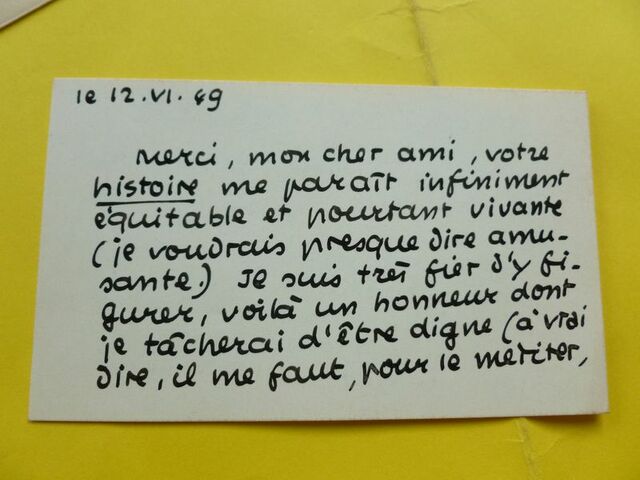 le 12.VI.69
Merci, mon cher ami, votre
histoire me paraît infiniment
équitable et pourtant vivante
(je voudrais presque dire amu-
sante.) Je suis très fier d'y fi-
gurer, voilà un honneur dont
je tâcherai d'être digne (à vrai
dire, il me faut, pour le mériter,